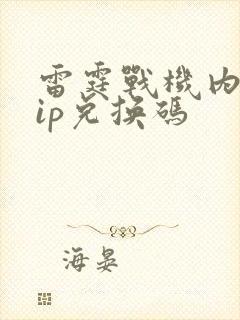 雷霆戰機內
ip兑换碼
海晏